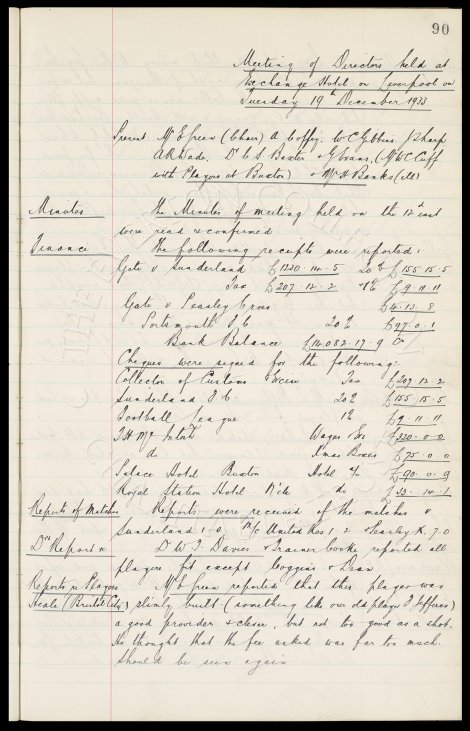 90
Meeting of Directors held at
Exchange Hotel on Liverpool on
Tuesday 19th December 1933
Present Mr E Green (Chair) A Coffey, W C Gibbins, J Sharp
A R Wade, Dr C S Baxter & J Evans, (Mr W C Cuff
with Players at Buxton) & Mr H Banks (ill)
Minutes The Minutes of meeting held on the 12th inst
were read & confirmed
Finance The following receipts were reported:
Gate v Sunderland £1220 . 14 . 5 20% £155 . 15 . 5
Tax £207 . 12 . 2 1% £9 . 11 . 11
Gate v Peasley Cross £4 . 13 . 8
Portsmouth F C 20% £97 . 0 . 1
Bank Balance £14,082 . 17 . 9 Cr
Cheques were signed for the following:
Collector of Customs & Excise Tax £207 . 12 . 2
Sunderland F C. 20% £155 . 15 . 5
Football League 1% £9 . 11 . 11
T H McIntosh Wages &c £320 . 0 . 0
do Xmas Boxes £75 . 0 . 0
Palace Hotel Buxton Hotel a/c £90 . 0 . 9
Royal Station Hotel N'cle do £33 . 14 . 1
Reports of Matches Reports were received of the matches v
Sunderland 1-0 M/c United Res 1-2 & Peasley X. 7-0
Drs Report &c Dr W. J. Davies & Trainer Cooke reported all
players fit except Coggins & Dean
Reports re Players Mr E Green reported that this player was
Heale (Bristol City) slimly built (something like our old player J Jefferis)
a good provider & clever, but not too good as a shot.
He thought that the fee asked was far too much.
Should be seen again